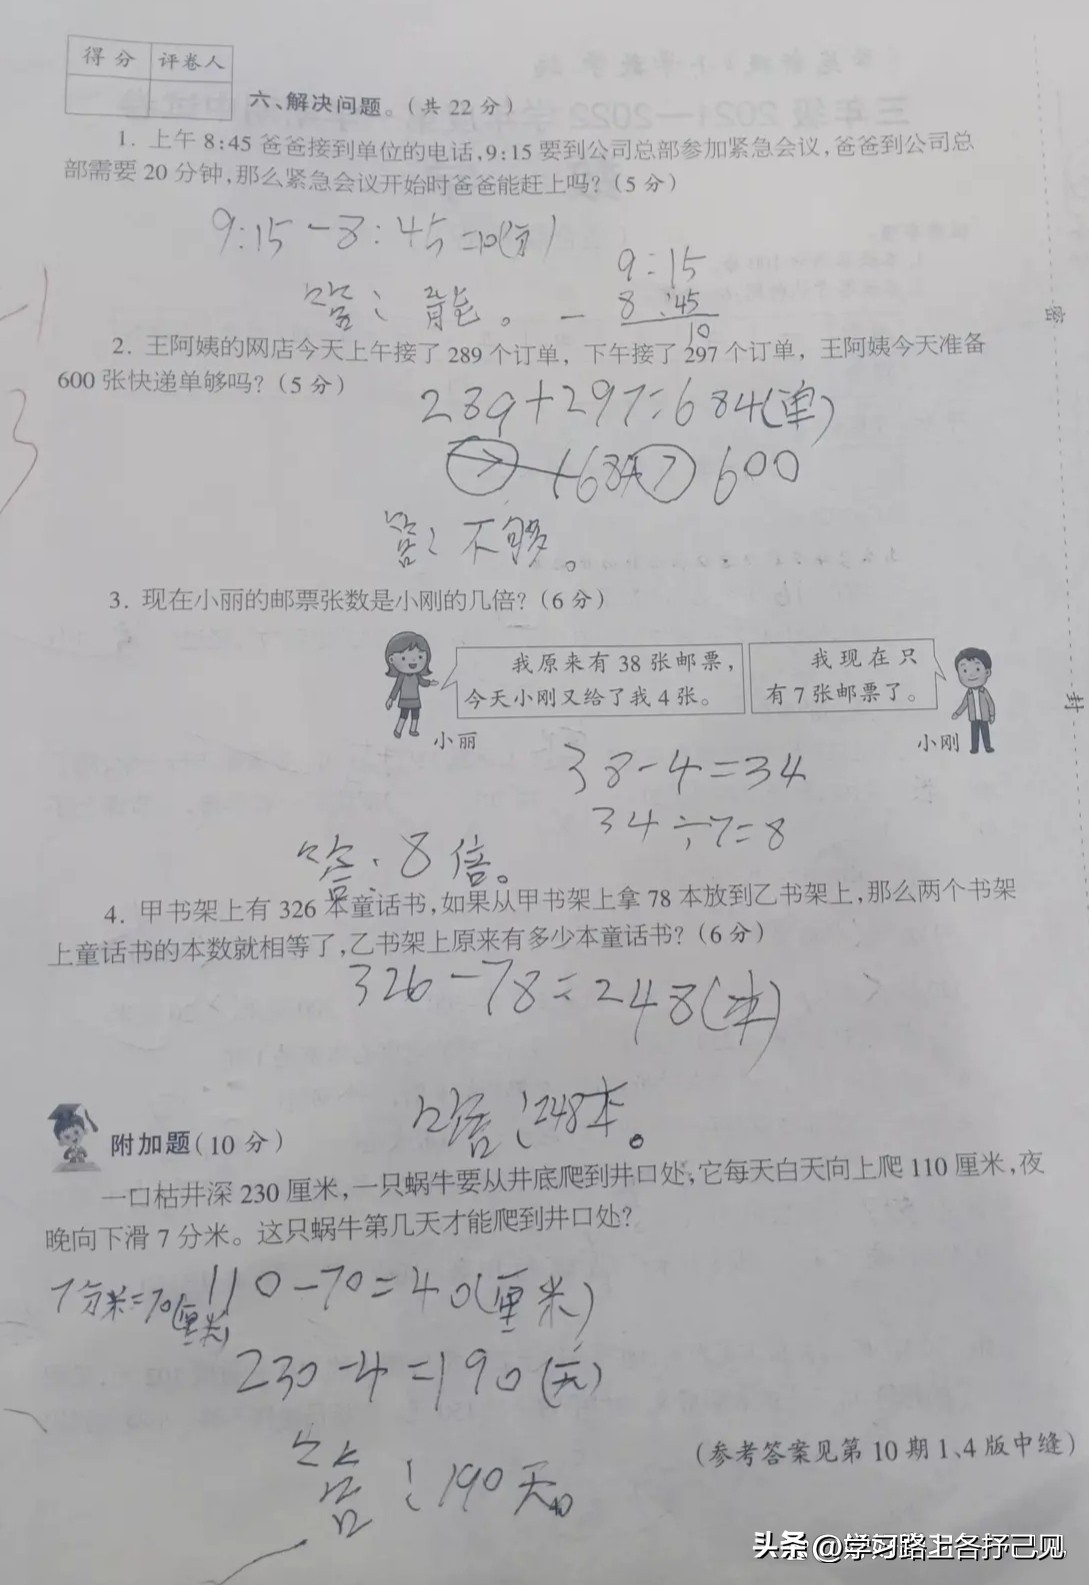 得分 评卷人
六、解决问题。(共22分)
1. 上午8:45爸爸接到单位的电话,9:15要到公司总部参加紧急会议,爸爸到公司总
部需要20分钟,那么紧急会议开始时爸爸能赶上吗?(5分)
9:15-8:45=10(分)
9:15
答:能。
- 8:45
10
2. 王阿姨的网店今天上午接了289个订单,下午接了297个订单,王阿姨今天准备
600张快递单够吗?(5分)
289+297=684(单)
684>600
答:不够。
3. 现在小丽的邮票张数是小刚的几倍?(6分)
我原来有38张邮票,
今天小刚又给了我4张。
我现在只
有7张邮票了。
小丽
小刚
38-4=34
34÷7=8
答:8倍。
4. 甲书架上有326本童话书,如果从甲书架上拿78本放到乙书架上,那么两个书架
上童话书的本数就相等了,乙书架上原来有多少本童话书?(6分)
326-78=248(本)
答:248本。
附加题(10分)
一口枯井深230厘米,一只蜗牛要从井底爬到井口处,它每天白天向上爬110厘米,夜
晚向下滑7分米。这只蜗牛第几天才能爬到井口处?
7分米=70(厘米)
110-70=40(厘米)
230-4=190(天)
答:190天。
(参考答案见第10期1、4版中缝)
密
封
头条 @学习路上各抒己见